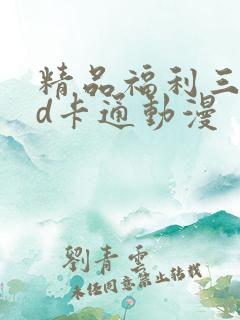 精品福利三
d卡通動漫
劉青雲
未经同意禁止转载